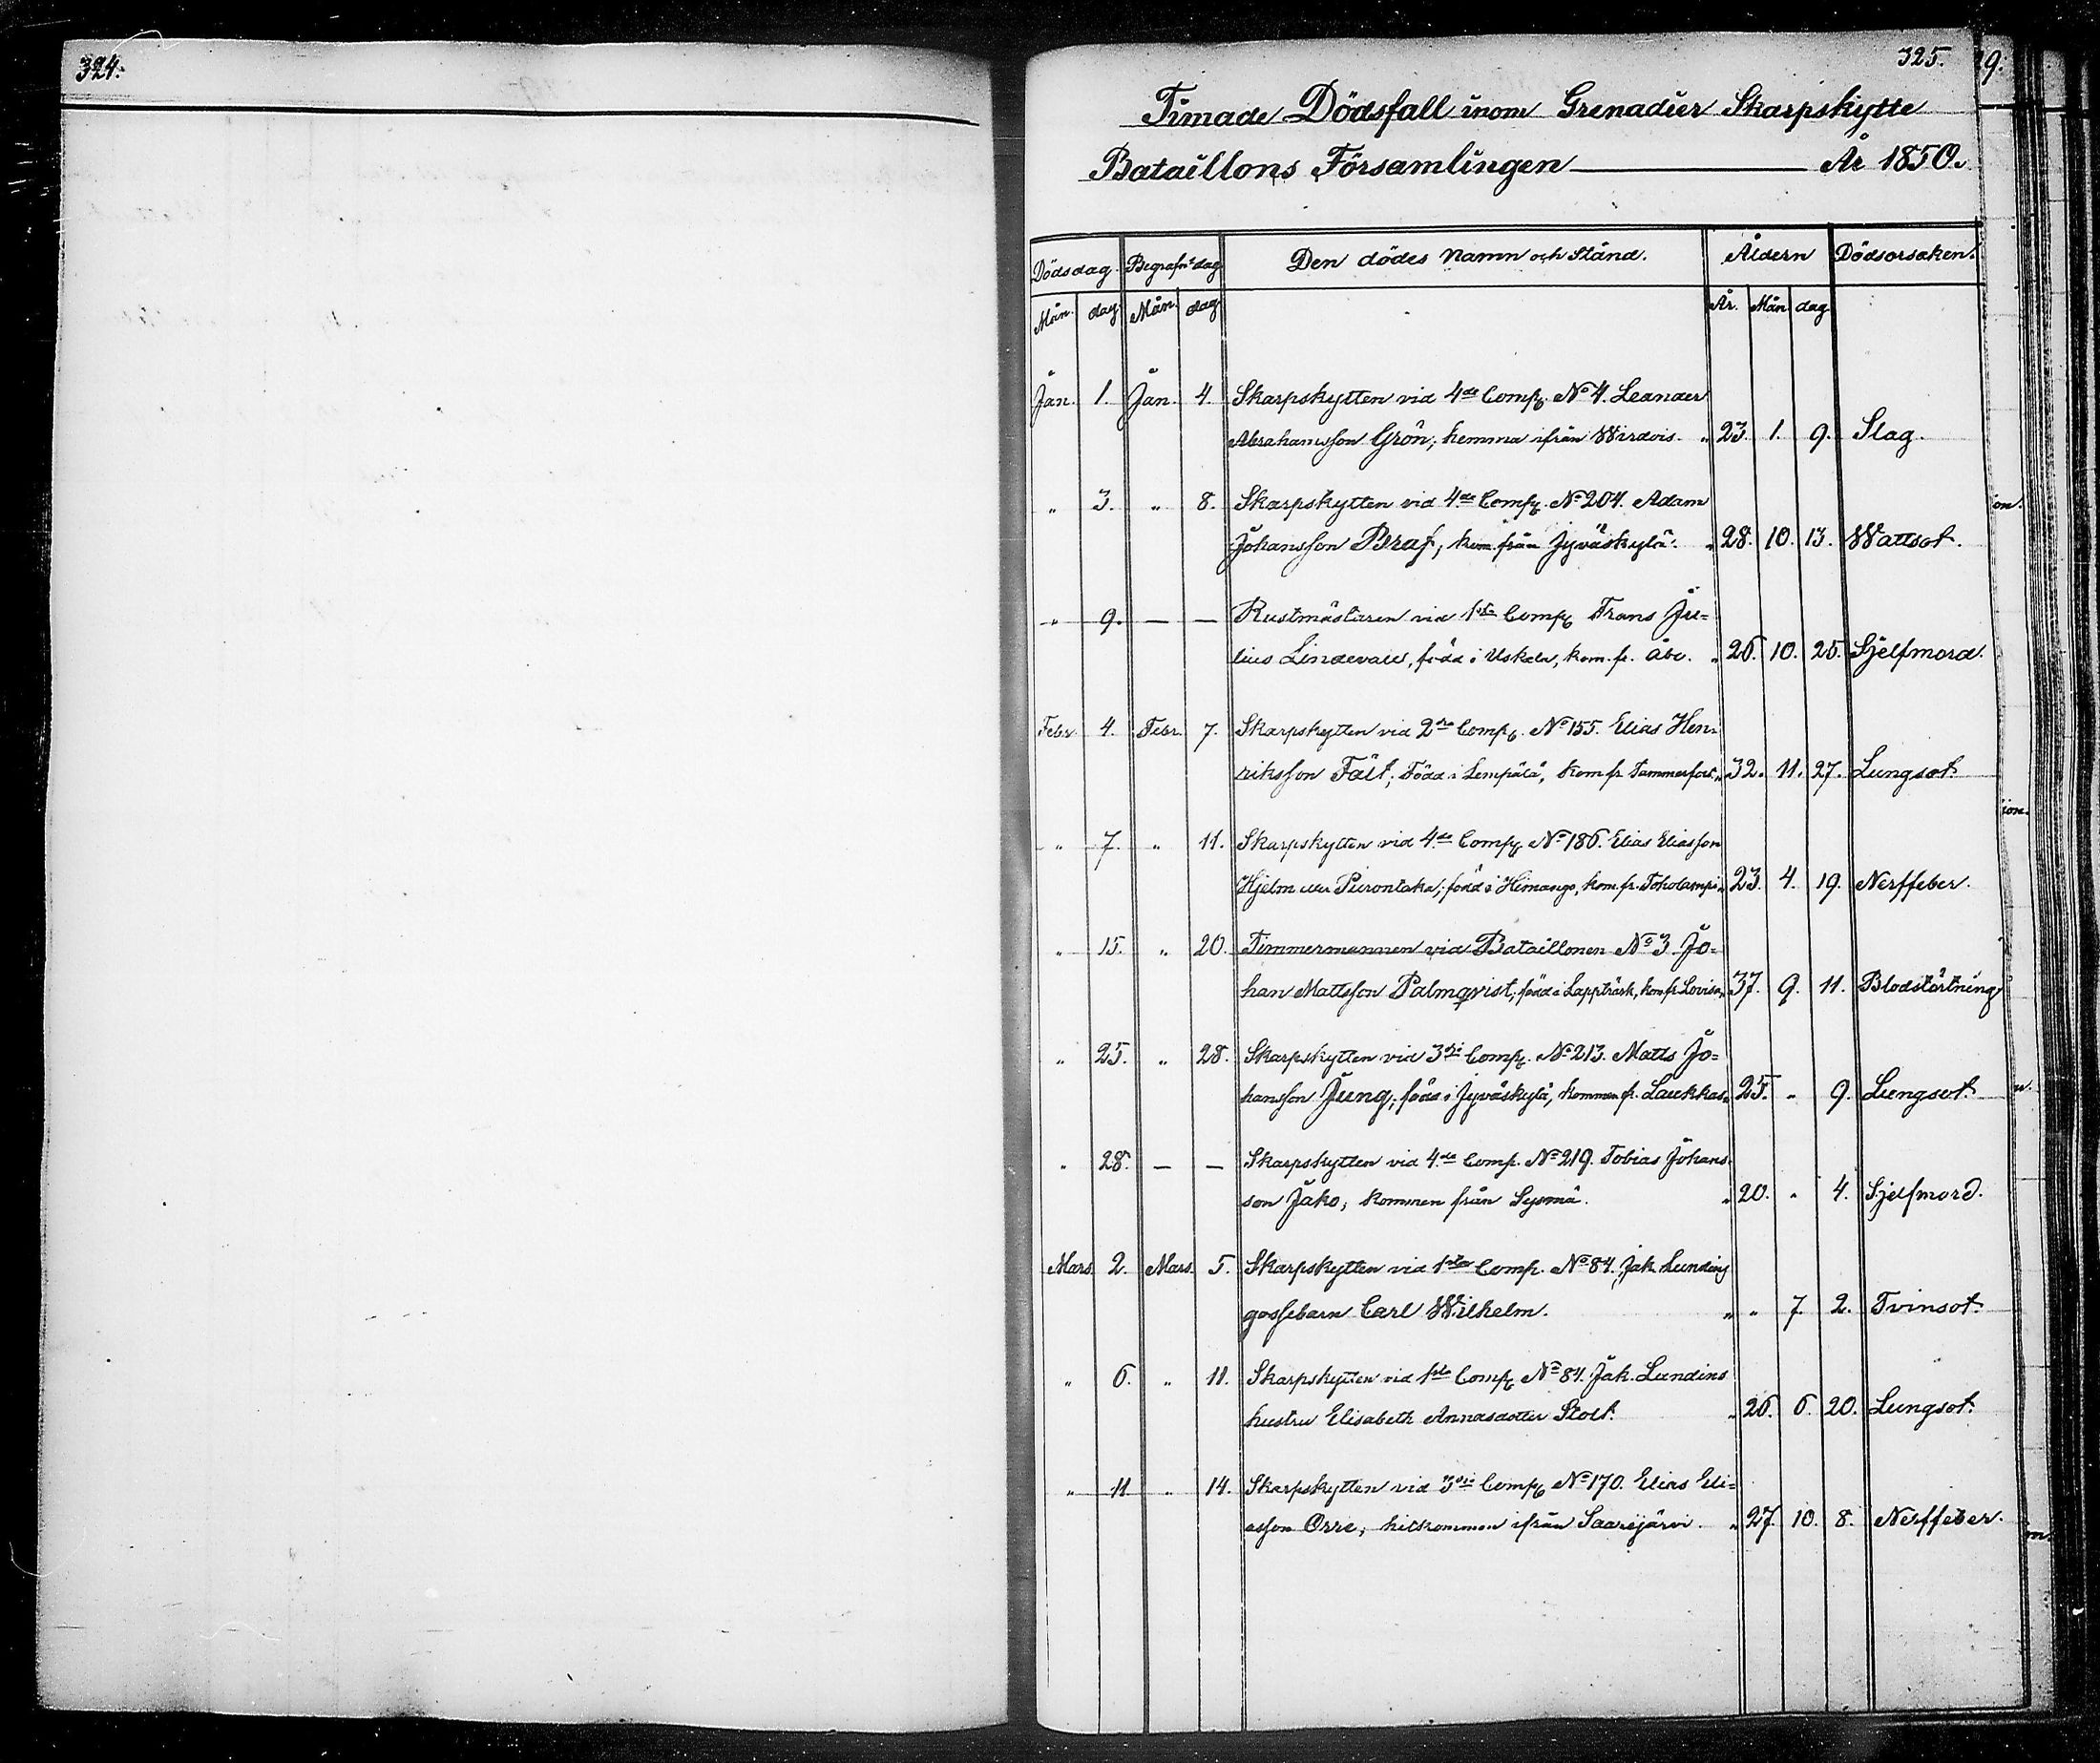 324.
325.
9.
Timade Dödsfall inom Grenadier Skarpskytte
Bataillons Församlingen — År 1850.
Dödsdag. Begrafn.s dag Den dödes Namn och Stånd. Åldern Dödsorsaken.
Mån. dag. Mån. dag År. Mån dag
Jan. 1. Jan. 4. Skarpskytten vid 4de Comp. No 4. Leander
Abrahamsson Grön, hemma ifrån Wirdois. " 23. 1. 9. Slag.
" 3. " 8. Skarpskytten vid 4de Comp. No 204. Adam
Johansson Braf, kom. från Jyväskylä. " 28. 10. 13. Wattsot.
" 9. — — Rustmästaren vid 1sta Comp. Frans Ju=
lius Lindevall, född i Uskela, kom. fr. Åbo. " 26. 10. 25. Sjelfmord.
Febr. 4. Febr. 7. Skarpskytten vid 2dra Comp. No 155. Elias Hen=
riksson Fält, Född i Lempälä, kom fr. Tammerfors. " 32. 11. 27. Lungsot.
" 7. " 11. Skarpskytten vid 4de Comp. No 186. Elias Eliasson
Hjelm eller Puirontaka, född i Himango, kom. fr. Toholampi " 23. 4. 19. Nerffeber.
" 15. " 20. Timmermannen vid Bataillonen No 3 Jo=
han Mattsson Palmqvist, född i Lappträsk, kom fr Lovisa, " 37. 9. 11. Blodstörtning
" 25. " 28. Skarpskytten vid 3dje Comp. No 213. Matts Jo=
hansson Jung, född i Jyväskylä, kommen fr. Laukkas. " 25. " 9. Lungsot.
" 28. — — Skarpskytten vid 4de Comp. No 219. Tobias Johans=
son Jåko, kommen från Sysmä. " 20. " 4. Sjelfmord.
Mars. 2. Mars. 5. Skarpskytten vid 1sta Comp. No 84. Jak. Lundins
gossebarn Carl Wilhelm. " " 7 2. Tvinsot.
" 6. " 11. Skarpskytten vid 1sta Comp. No 84. Jak. Lundins
hustru Elisabeth Annasdotter Stolt. " 26. 6. 20. Lungsot.
" 11 " 14. Skarpskytten vid 3dje Comp. No 170. Elias Eli=
asson Orre, hitkommen ifrån Saarijärvi. " 27. 10. 8. Nerffeber.